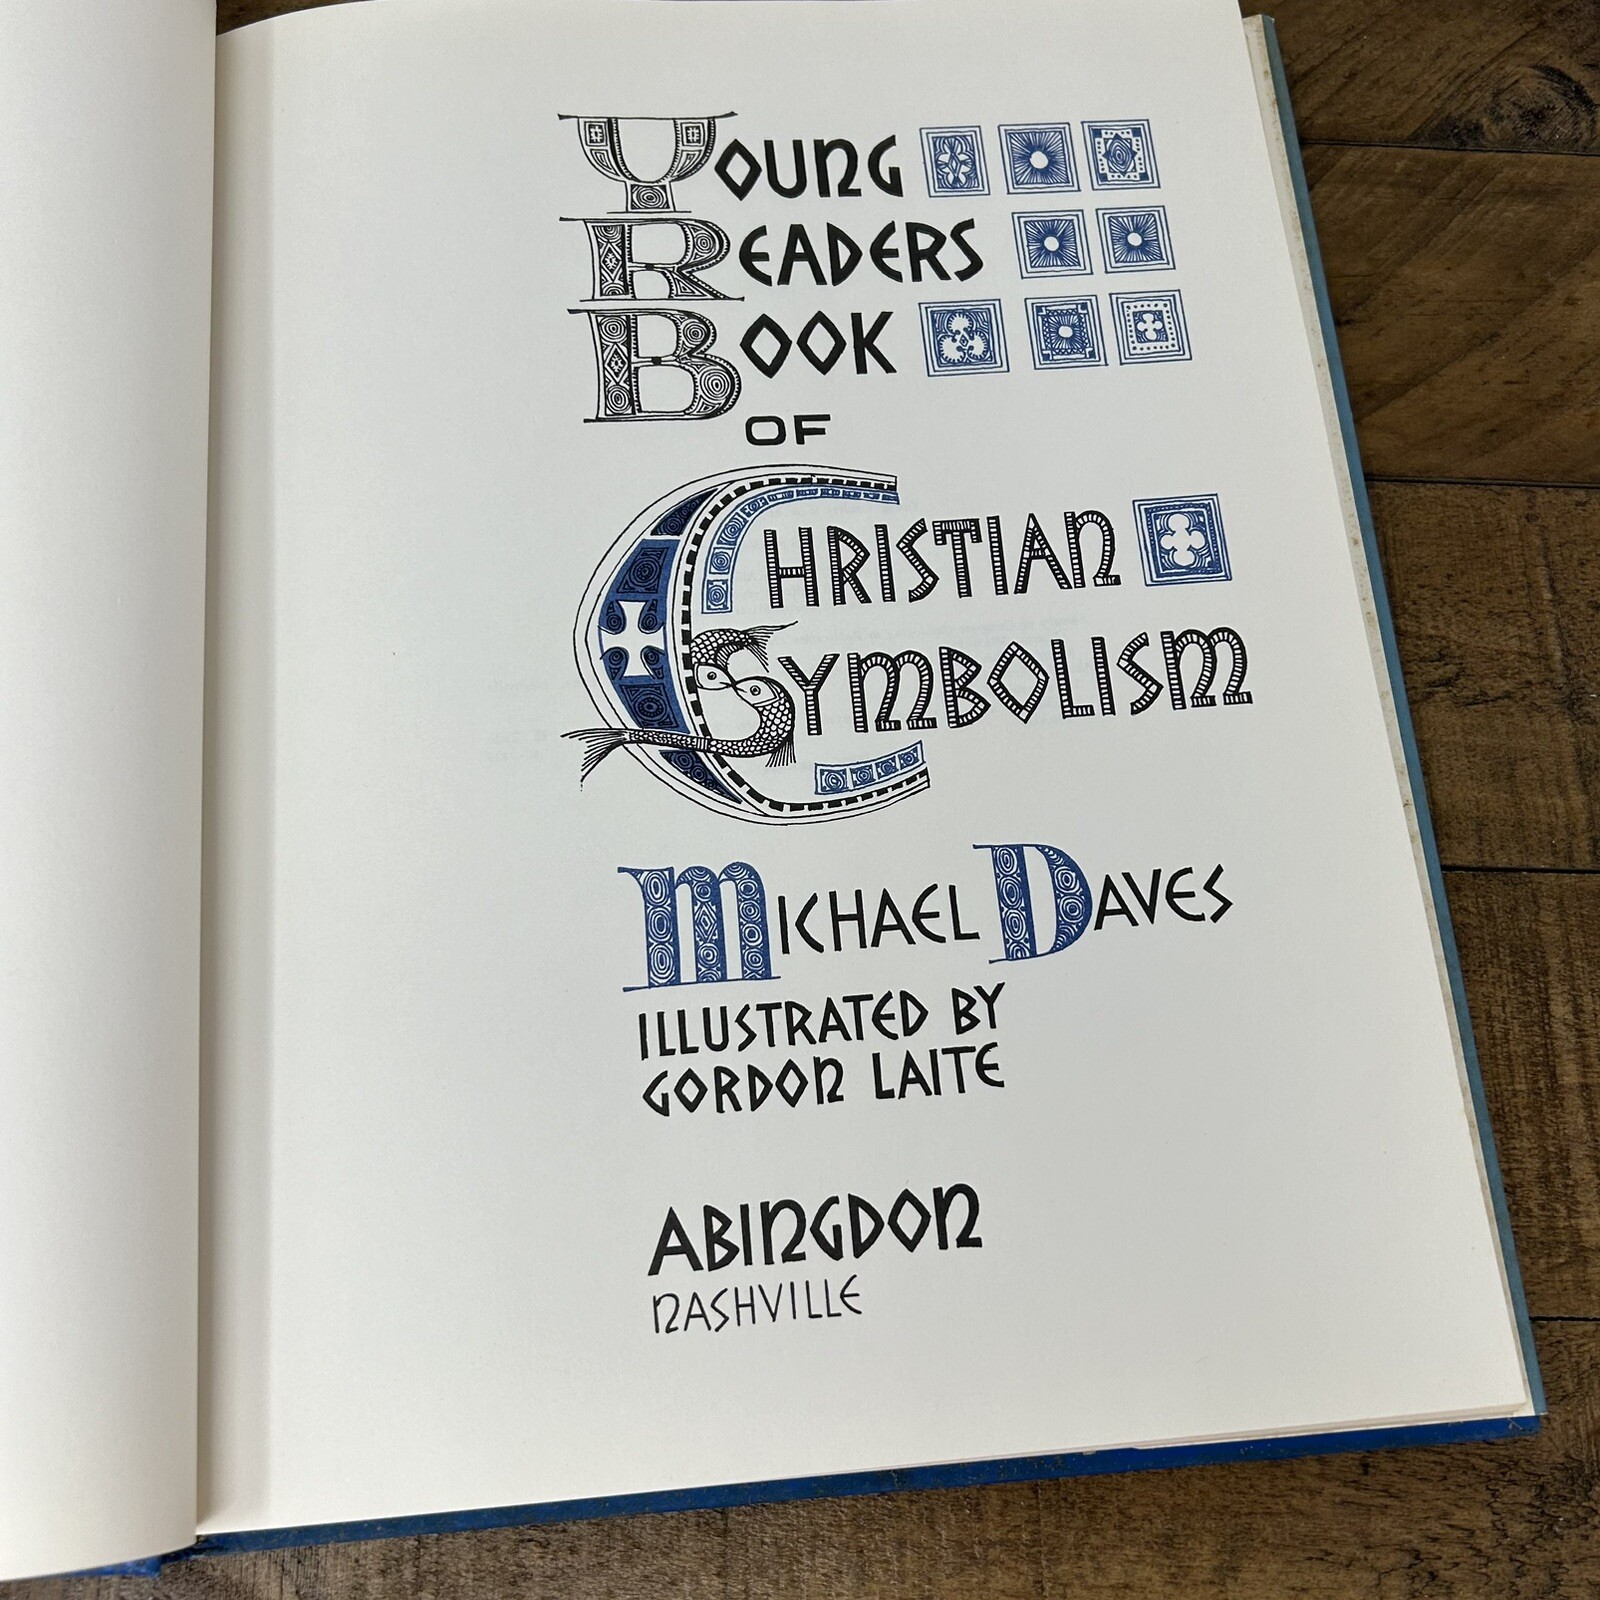 Young
Readers
Book
OF
Christian
Symbolism
Michael Daves
ILLUSTRATED BY
GORDON LAITE
ABINGDON
NASHVILLE